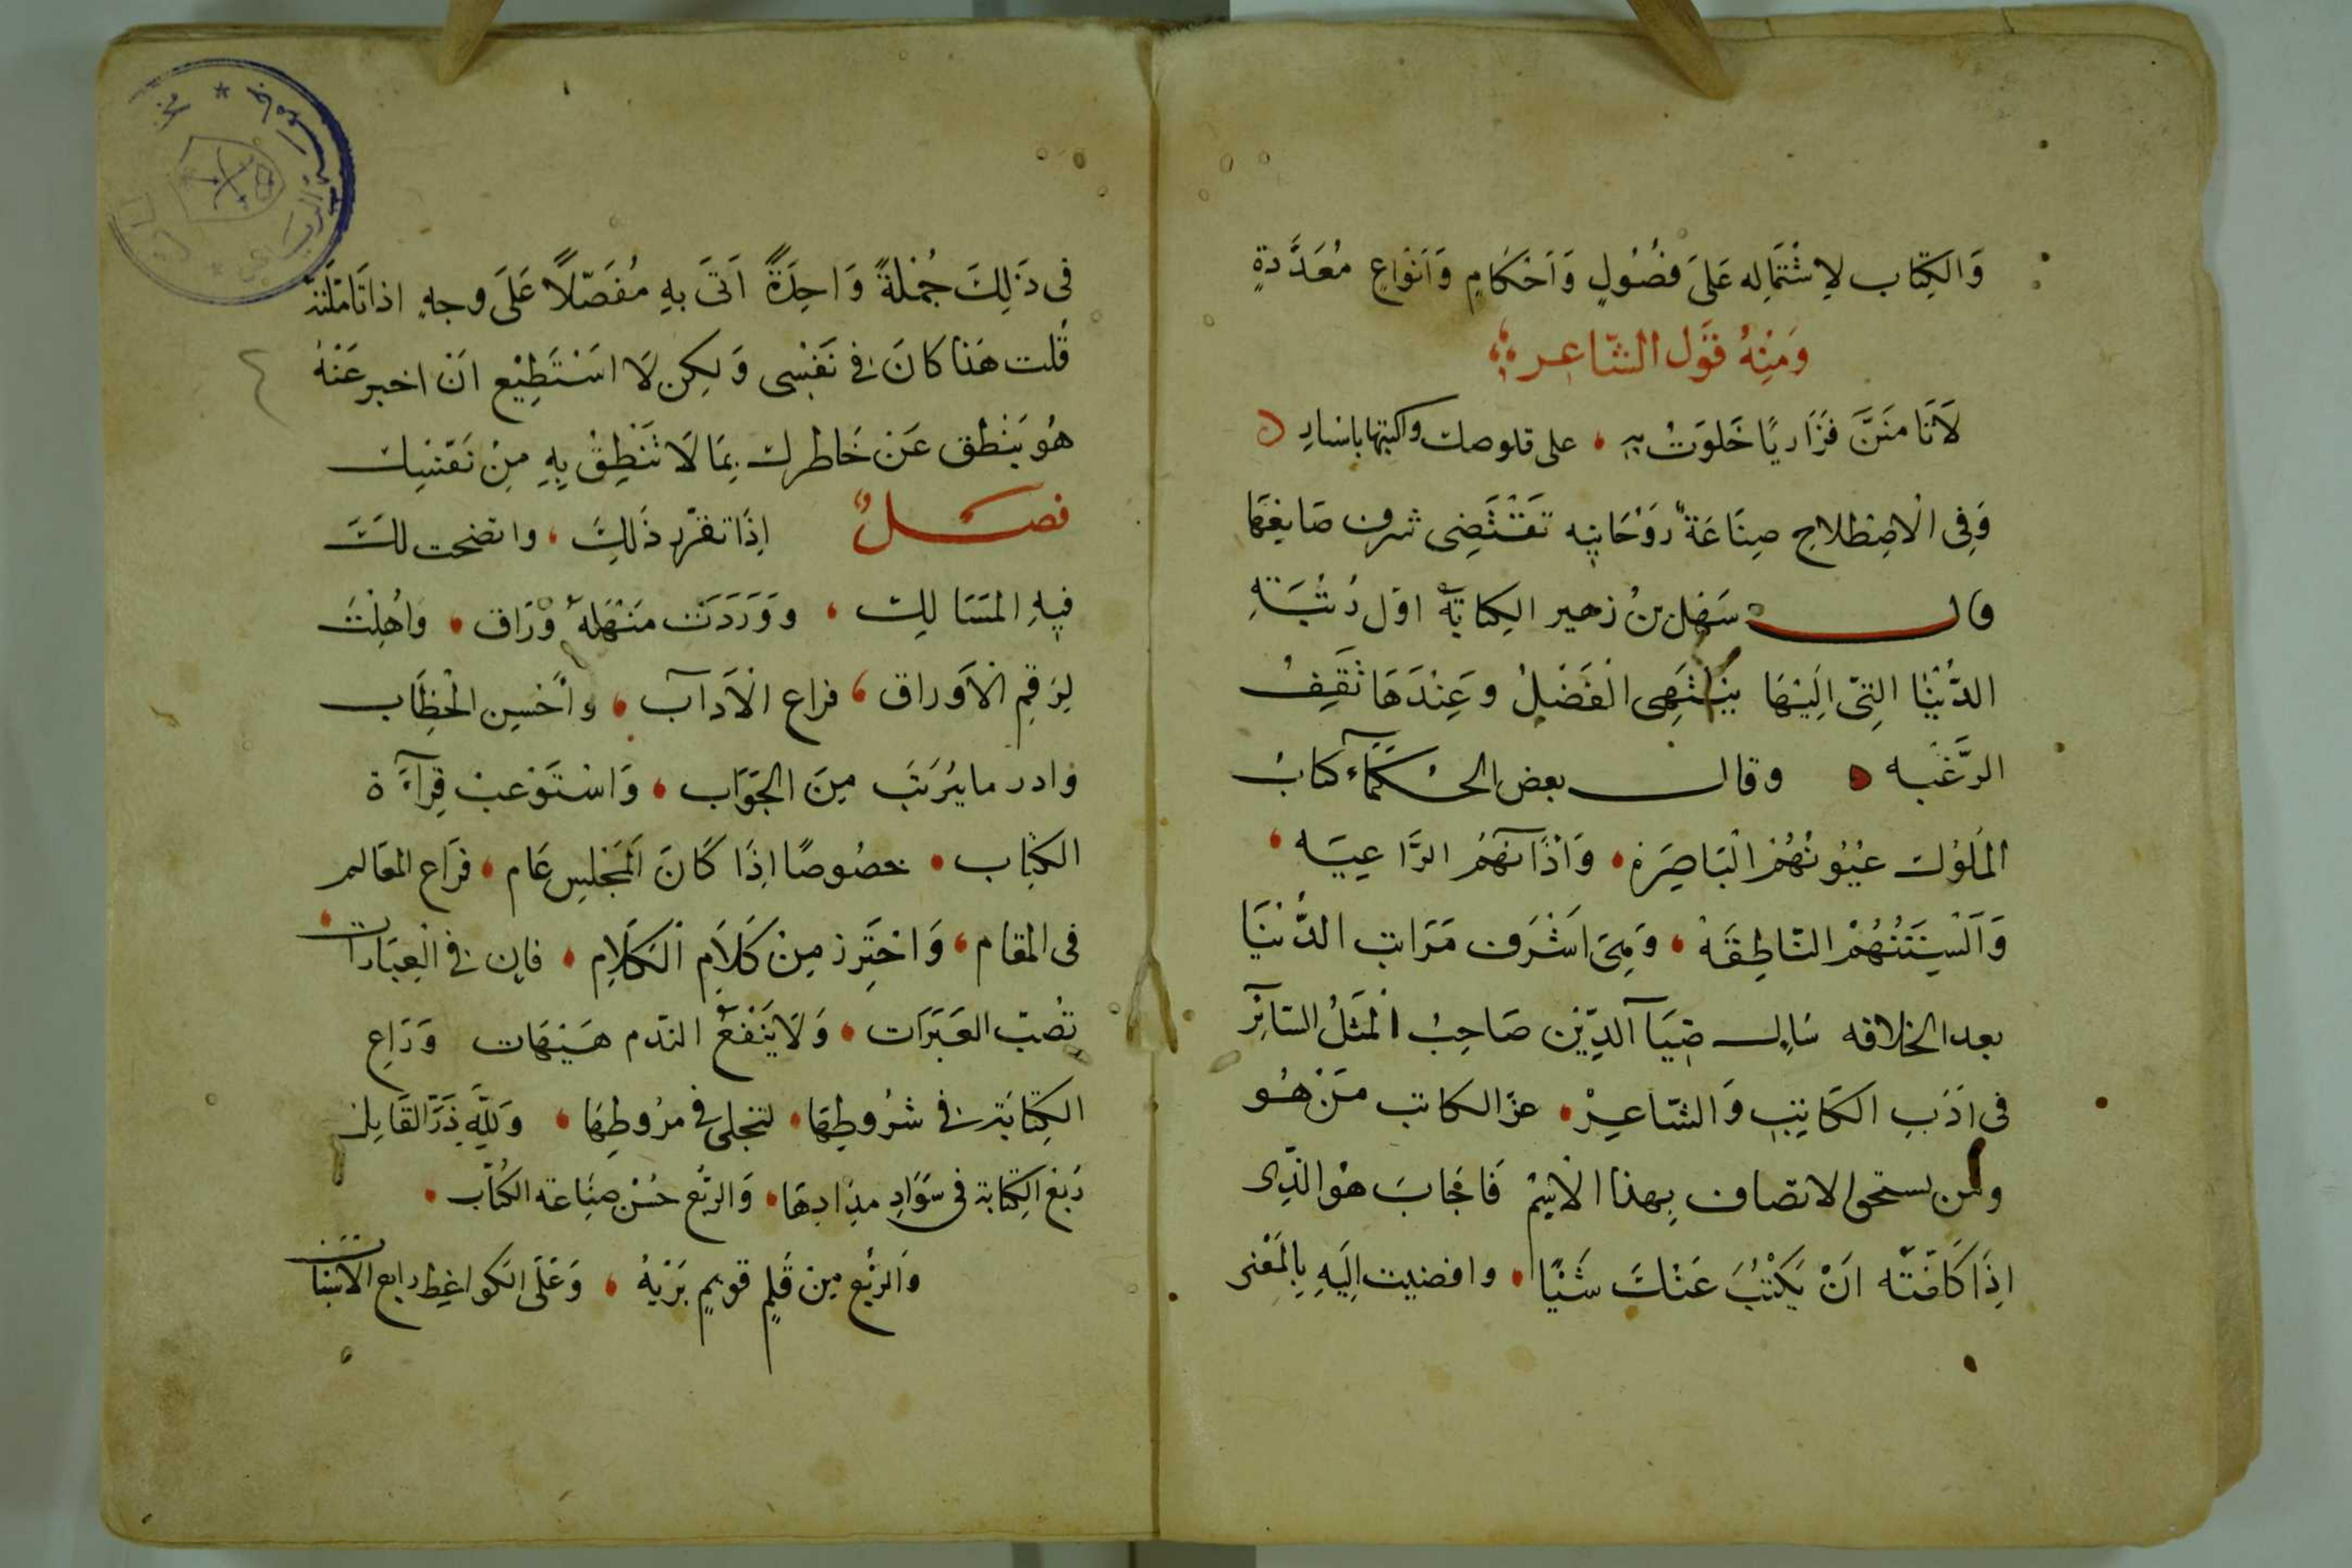 وَالكِتَاب لاِشْتمَاِله عَلىَ فصُوُلٍ وَاَحْكَامٍ وَاَنوَاعٍ مُعَدَّدةٍ
وَمِنْهُ قَوَل الشّاعِر
لَا تَامنَنَّ فَزَاريًا خَلوَتُ بِهِ على قلوصك واكتبها باسيارِ
وَفِى الاصْطلاحِ صِنَاعَةٌ رَوْحَانِيه تَقتَضِى شرف صَايغِهَا
وقال سَهل بنُ زهير الكتابةُ اول رُتْبَةِ
الدُّنْيَا التِىّ اِلَيْهَا يَنْتَهِى الفَضْلُ وعِنْدَهَا تَقِفُ
الرَّغْبه وقال بعض الحُكمَآء كتابُ
المَلوُك عيُوُنُهُمْ البَاصِرَه وَاذَانهُمُ الوَّاعِيَه
وَاَلْسِنَتُهُمْ النّاطِقَهْ وَهِىَ اَشْرَف مَرَاتب الدُّنْيَا
بعد الخلافه سَاِل ضِيَآ الدِّيْن صَاحِبُ المَثَلُ السَّائِر
فى ادَبِ الكَاتِبِ وَالشّاعِرْ عن الكاتب مَنْ هُو
ومن يستحق الاتصاف بِهذا الاسْمِ فَاجَابَ هوُ الذّى
اِذَا كَلفْتَه اَنْ يَكْتُبَ عَنْكَ شَيْئًا وافضيت اِلَيهِ بِالمَعْنى
فِى ذَلِكَ جُمْلةً وَاحِدَةً اَتىَ بهِ مُفَصّلاً عَلىَ وجهٍ اذا تَامّلتَهُ
قُلت هَذا كانَ فى نَفْسِى وَلكِن لاَ اسْتَطِيْع اَنْ اخبر عَنهُ
هُو يَنْطق عَن خَاطرك بِمَا لَا تَنْطِقُ بِهِ مِنْ نَفْسِك
فصْلٌ اِذَا تقرّر ذَلِكَ واتضحت لكَ
فيهِ المسَالِك ووَرَدَتْ مَنْهَلهُ وَرَاق وَاُهلِتَ
لِرَقمِ الاَوراق فراع الاَدَآب وأحْسِن الْخِطَاب
وادر ما يَتَرتَب مِنَ الجَوَاب وَاسْتَوْعِبْ قِرآءَة
الكتِاب خصُوصًا اِذَا كَانَ المَجْلِس عَام فرَاع المعَالم
فى المقَام وَاحْتَرِز مِنْ كَلاَمِ الكَلاَمِ فان فى العِبَارات
تُصبّ العَبَرَات وَلاَ يَنْفَعُ الندّم هَيْهَات وَرَاعِ
الكِتَابَة فى شرُوُطِهَا لتجلى فى مرُوطِهَا وَلِلّهِ دَرُّ القَايِلِ
رُبْع الكِتَابة فى سَوَادِ مدَادِهَا وَالربع حُسْن صِنَاعَه الكُتّاب
وَالرُّبْع مِن قَلمٍ قويمٍ بَرْيَهُ وَعَلى الكواغِط رابع الاسْبَاب